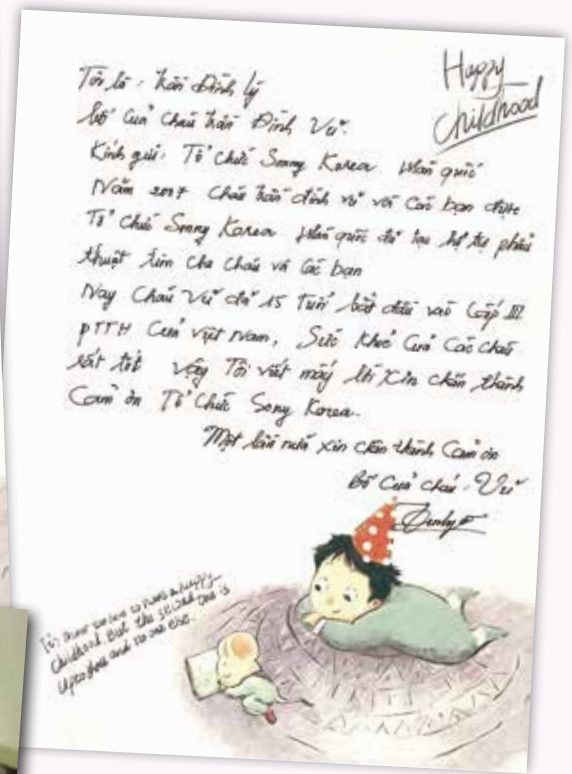 Happy
Childhood
Tôi là: Trần Đình Lý
bố Của Cháu Trần Đình Vũ.
Kính gửi: Tổ chức Sony Korea Hàn quốc
Năm 2007 Cháu Trần đình vũ và Các bạn được
Tổ chức Sony Korea Hàn quốc đã tài trợ phẫu
thuật tim cho Cháu và Các bạn
Nay Cháu Vũ đã 15 tuổi bắt đầu vào Cấp III
PTTH Của Việt Nam, Sức Khỏe Của Các cháu
rất tốt vậy Tôi viết mấy lời Xin chân thành
Cảm ơn Tổ Chức Sony Korea.
Một lần nữa xin chân thành Cảm ơn
Bố Của cháu: Vũ
It's never too late to have a happy
Childhood. But the second one is
up to you and no one else.